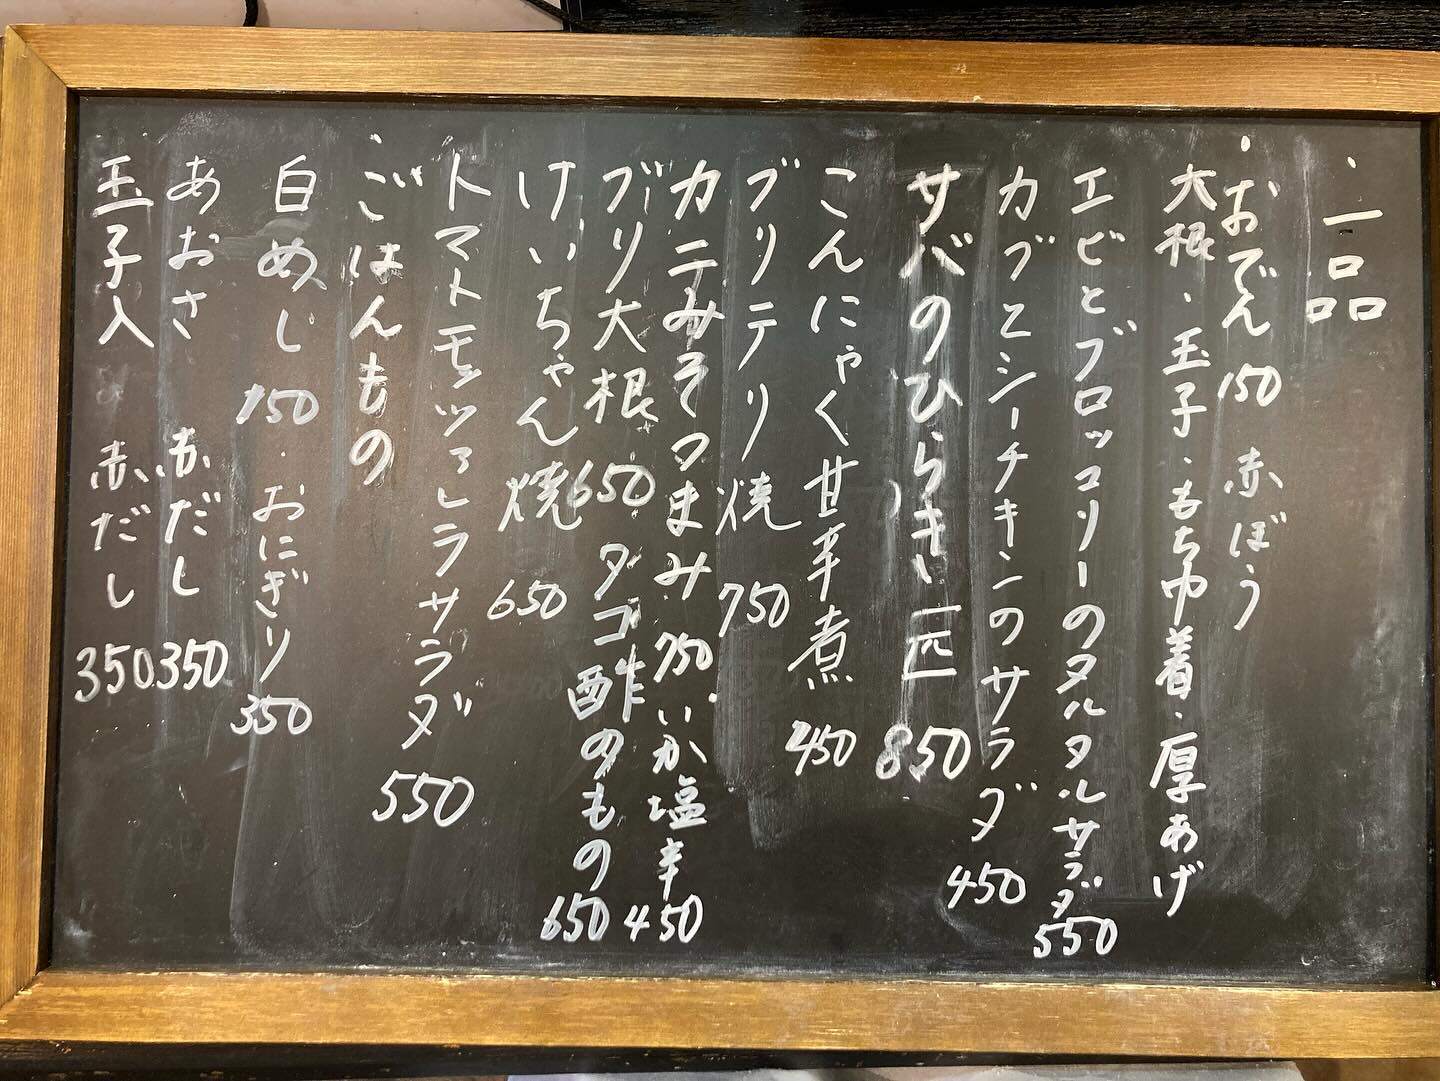 ・一品
・おでん 150 赤ぼう
大根・玉子・もち巾着・厚あげ
エビとブロッコリーのタルタルサラダ 550
カブとシーチキンのサラダ 450
サバのひらき 一匹 850
こんにゃく甘辛煮 450
ブリテリ焼 750
カニみそつまみ 750 いか塩辛 450
ブリ大根 650 タコ酢のもの 650
けいちゃん焼 650
トマトモッツァレラサラダ 550
・ごはんもの
白めし 150・おにぎり 350
あおさ 赤だし 350
玉子入 赤だし 350